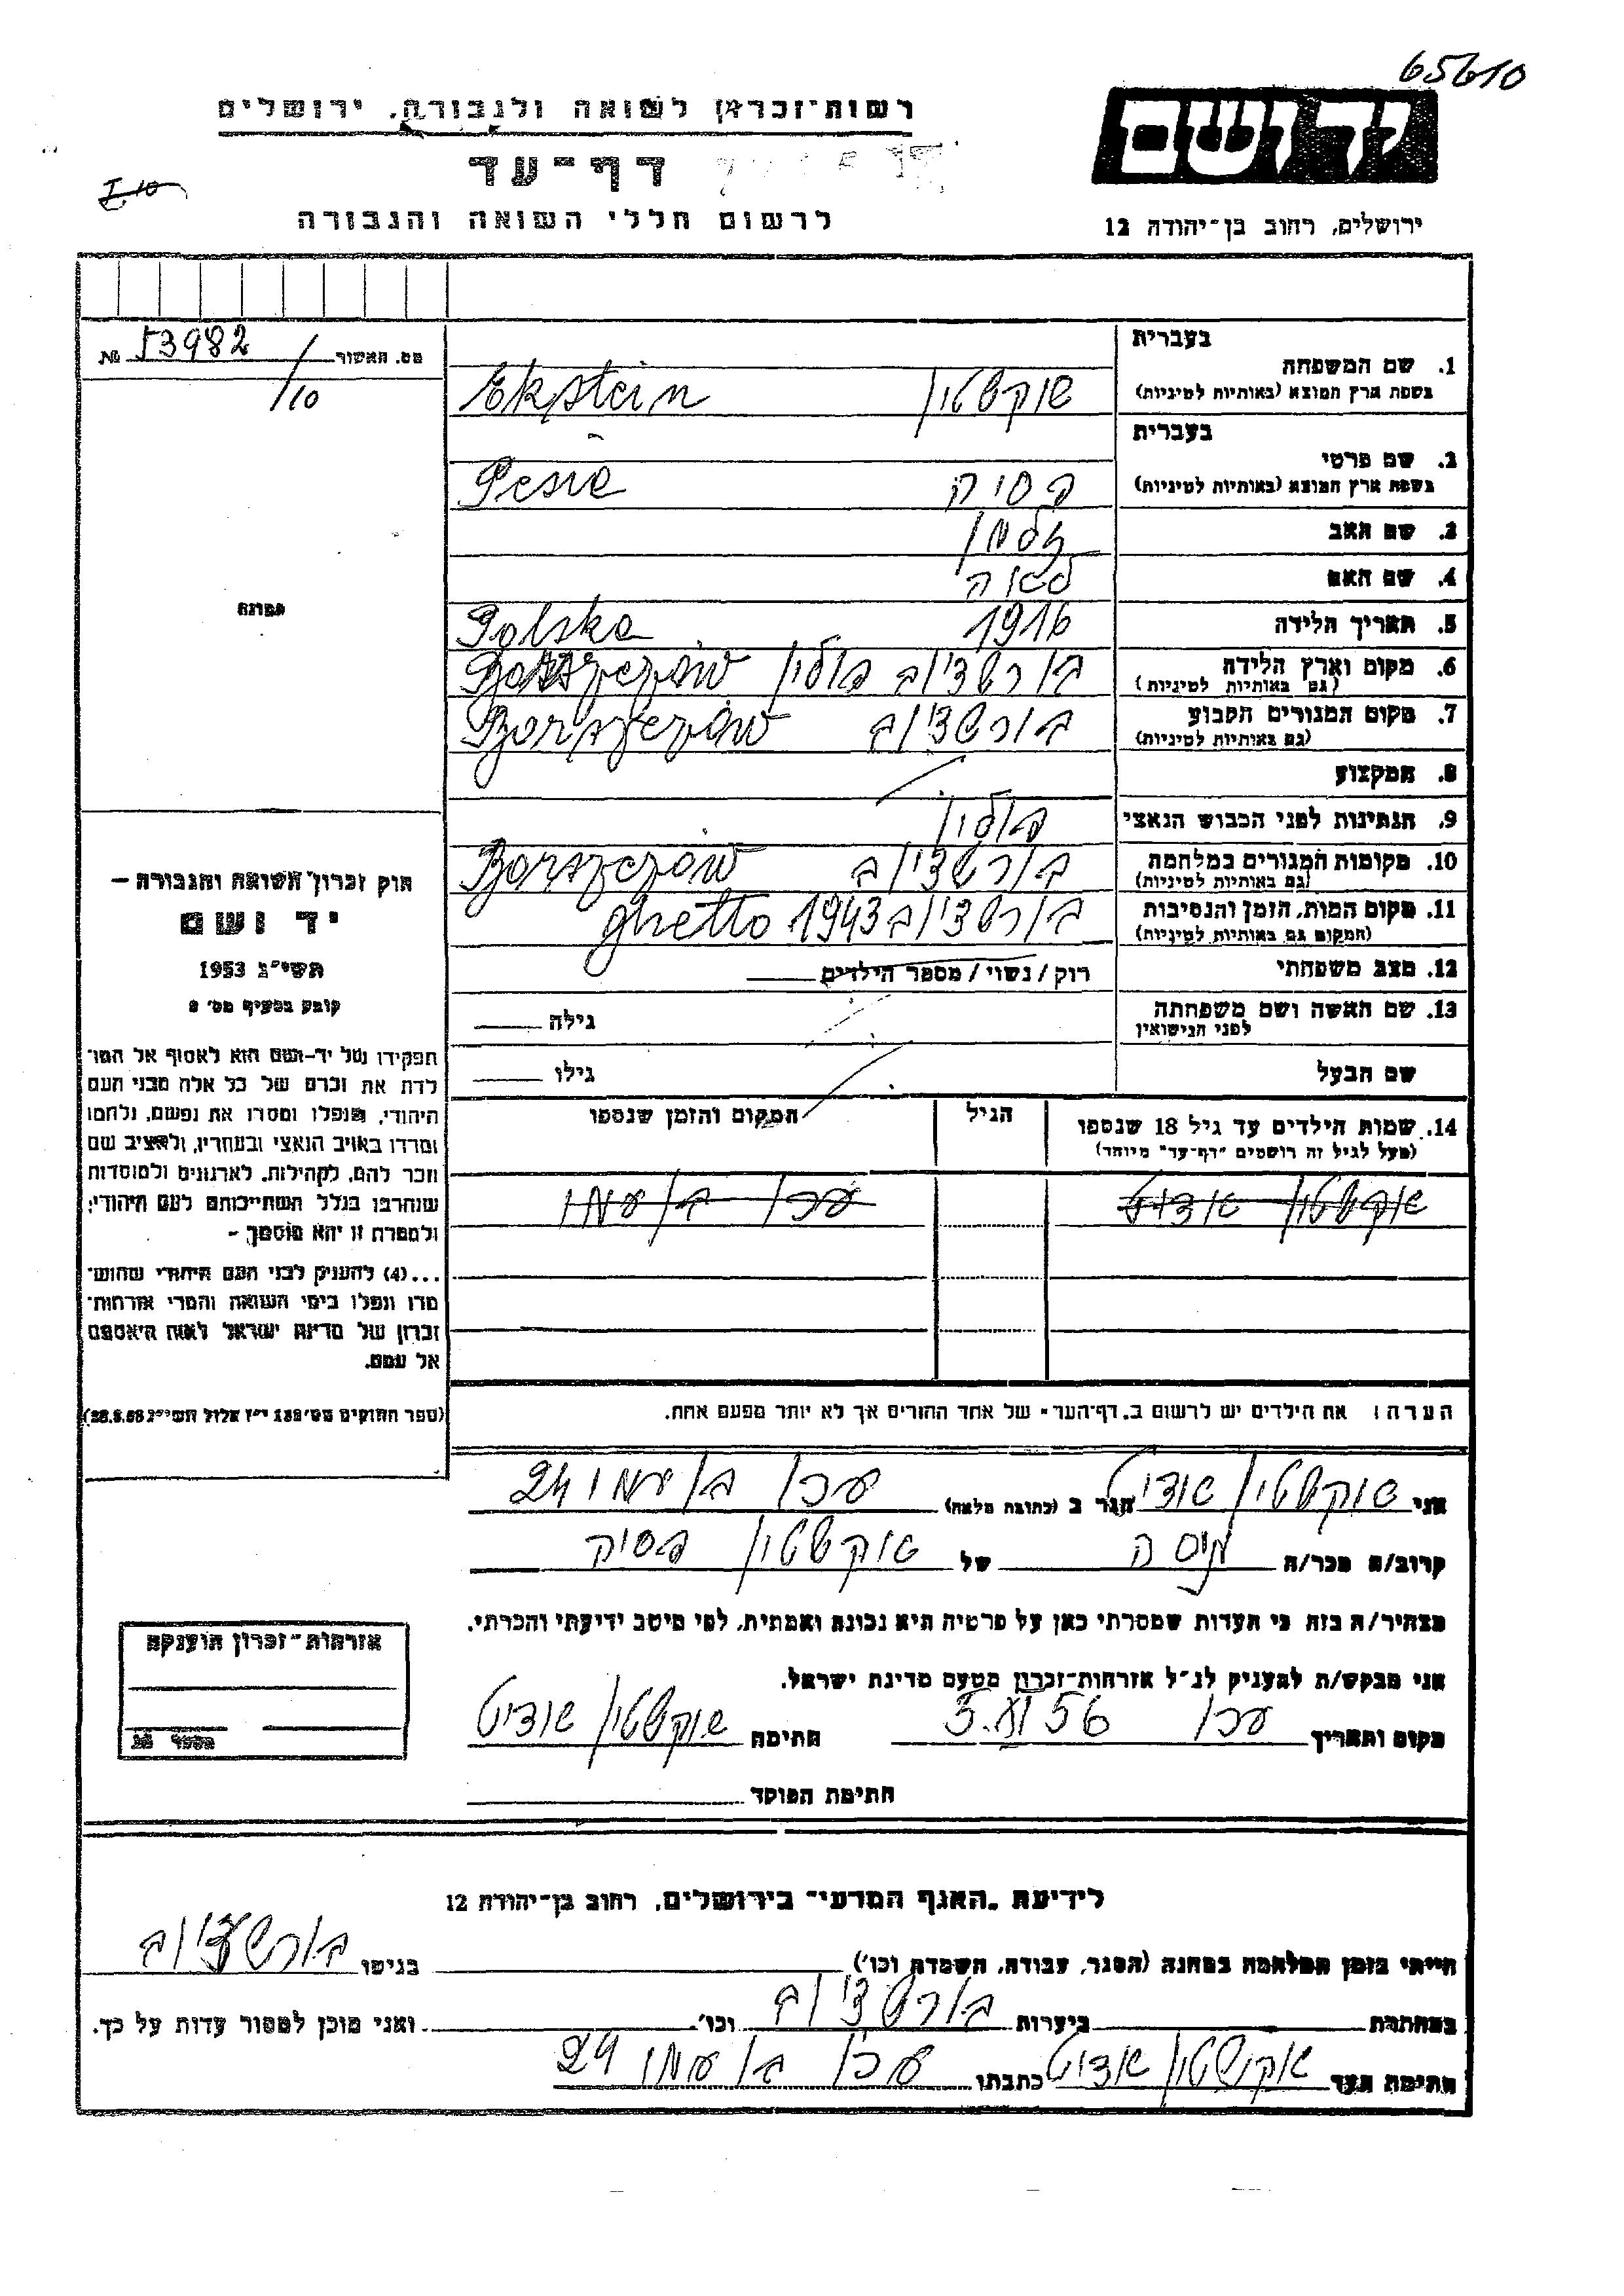 65610
רשות־זכרון לשואה ולגבורה, ירושלים
יד ושם
דף־עד
לרשום חללי השואה והגבורה
ירושלים, רחוב בן־יהודה 12
מס. האשור 53982 №
/10
בעברית
1. שם המשפחה
בשפת ארץ המוצא (באותיות לטיניות)
אקשטין Ekstein
בעברית
2. שם פרטי
בשפת ארץ המוצא (באותיות לטיניות)
פסיה Pesie
3. שם האב זלמן
4. שם האם לאה
5. תאריך הלידה 1916 Polska
6. מקום וארץ הלידה בורשציוב פולין Borszczów
(גם באותיות לטיניות)
7. מקום המגורים הקבוע בורשציוב Borszczów
(גם באותיות לטיניות)
8. המקצוע
9. הנתינות לפני הכבוש הנאצי פולין
10. מקומות המגורים במלחמה בורשציוב Borszczów
(גם באותיות לטיניות)
11. מקום המות, הזמן והנסיבות בורשציוב 1943 ghetto
(המקום גם באותיות לטיניות)
12. מצב משפחתי רוק / נשוי / מספר הילדים
13. שם האשה ושם משפחתה גילה
לפני הנישואין
שם הבעל גילו
14. שמות הילדים עד גיל 18 שנספו הגיל המקום והזמן שנספו
(מעל לגיל זה רושמים "דף־עד" מיוחד)
אקשטין עכו בן עמי
הערה: את הילדים יש לרשום ב„דף־העד" של אחד ההורים אך לא יותר מפעם אחת.
תמונה
חוק זכרון השואה והגבורה –
יד ושם
תשי"ג 1953
קובע בסעיף מס' 2
תפקידו של יד־ושם הוא לאסוף אל המו־
לדת את זכרם של כל אלה מבני העם
היהודי, שנפלו ומסרו את נפשם, נלחמו
ומרדו באויב הנאצי ובעוזריו, ולהציב שם
וזכר להם, לקהילות, לארגונים ולמוסדות
שנחרבו בגלל השתייכותם לעם היהודי;
ולמטרה זו יהא מוסמך –
...(4) להעניק לבני העם היהודי שהוש־
מדו ונפלו בימי השואה והמרי אזרחות־
זכרון של מדינת ישראל לאות היאספם
אל עמם.
(ספר החוקים מס' 132 י"ז אלול תשי"ג 28.8.53)
אני אקשטין אדית הגר ב (כתובת מלאה) עכו בן עמי 24
קרוב/ה מכר/ה גיסה של אקשטין פסיה
מצהיר/ה בזה כי העדות שמסרתי כאן על פרטיה היא נכונה ואמתית, לפי מיטב ידיעתי והכרתי.
אני מבקש/ת להעניק לנ"ל אזרחות־זכרון מטעם מדינת ישראל.
מקום ותאריך עכו 56 חתימה אקשטין אדית
חתימת הפוקד
אזרחות־זכרון הוענקה
לידיעת „האגף המדעי" בירושלים, רחוב בן־יהודה 12
הייתי בזמן המלחמה במחנה (הסגר, עבודה, השמדה וכו') בגיטו בורשציוב
במחתרת ביערות בורשציוב וכו' ואני מוכן למסור עדות על כך.
חתימת העד אקשטין אדית כתבתו עכו בן עמי 24